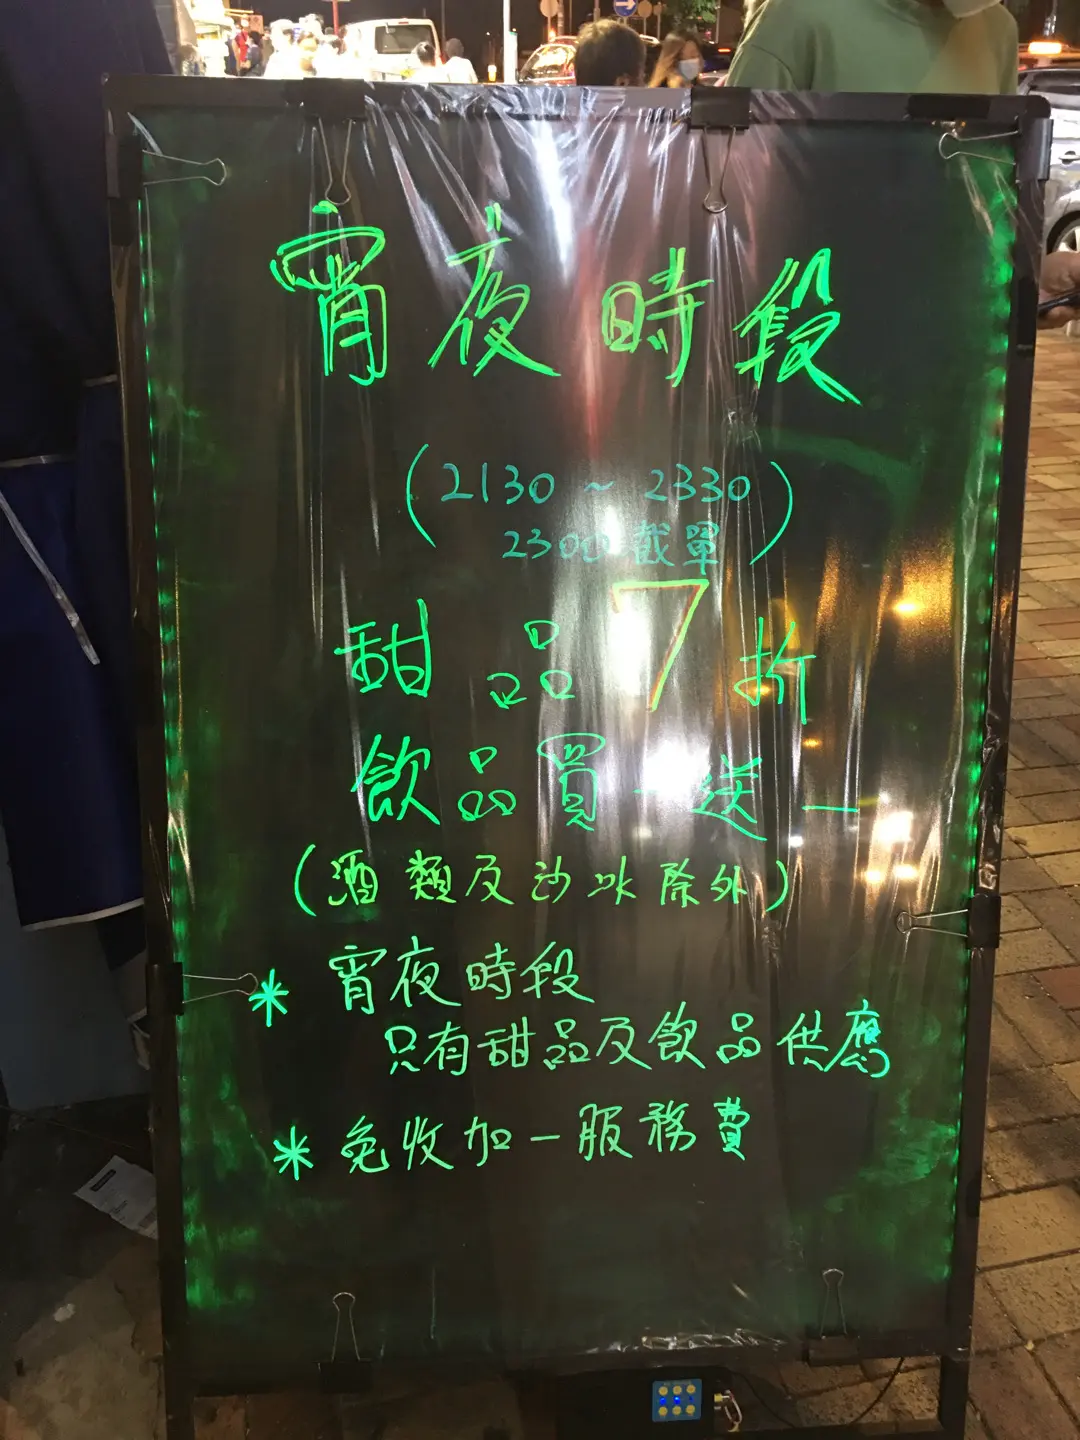 宵夜時段
(2130 ~ 2330
2300 截單)
甜品7折
飲品買一送一
(酒類及沙冰除外)
* 宵夜時段
只有甜品及飲品供應
* 免收加一服務費